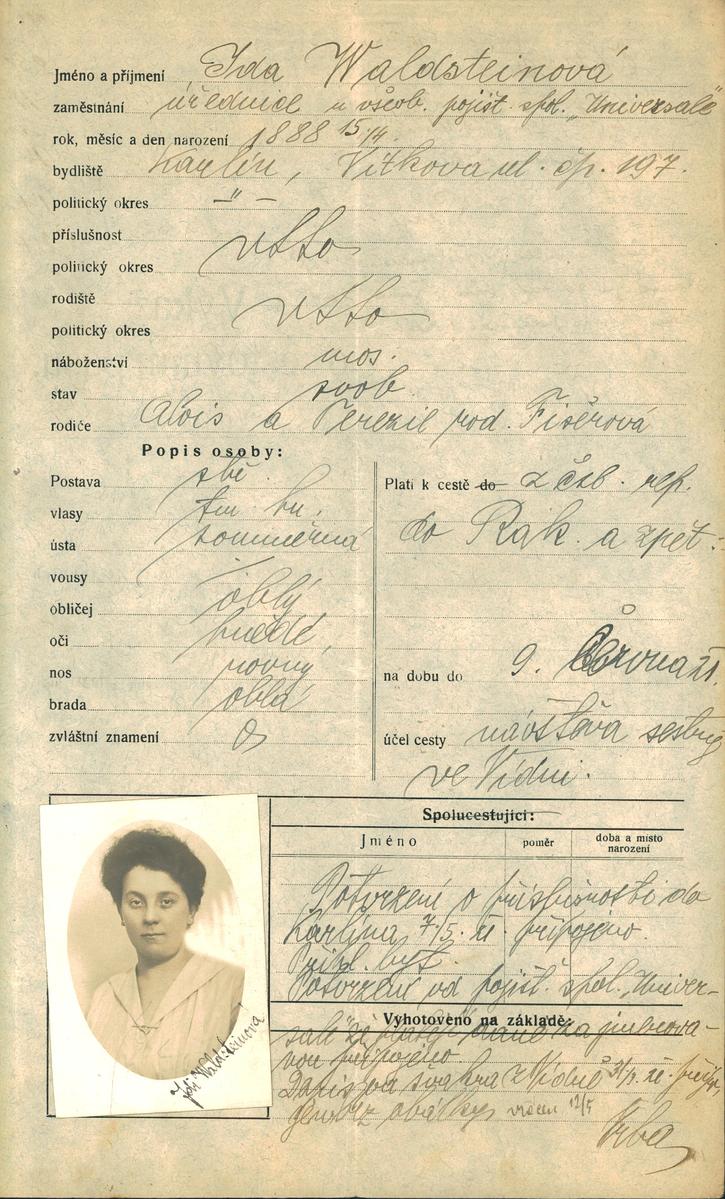 Jméno a příjmení Ida Waldsteinová
zaměstnání úřednice u všeob. pojišt. spol. „Universale"
rok, měsíc a den narození 1888 15/4.
bydliště Karlín, Vítkova ul. čp. 197.
politický okres – " –
příslušnost
politický okres
rodiště
politický okres
náboženství mos.
stav svob.
rodiče Alois a Terezie rod. Fišerová
Popis osoby:
Postava
vlasy tm. hn.
ústa souměrná
vousy /
obličej oblý
oči hnědé
nos rovný
brada oblá
zvláštní znamení 0
Platí k cestě do z čsl. rep.
do Rak. a zpět.
na dobu do 9. června 21.
účel cesty návštěva sestry
ve Vídni.
Spolucestující:
Jméno poměr doba a místo narození
Potvrzení o příslušnosti do
Karlína 7/5. 21 připojeno.
byt.
Potvrzení od pojišť. spol. „Univer-
Vyhotoveno na základě:
sale" že daně za
připojeno.
Dopis od švakra z Vídně
bez obálky vrácen 12/5
Vrba
Ida Waldsteinova